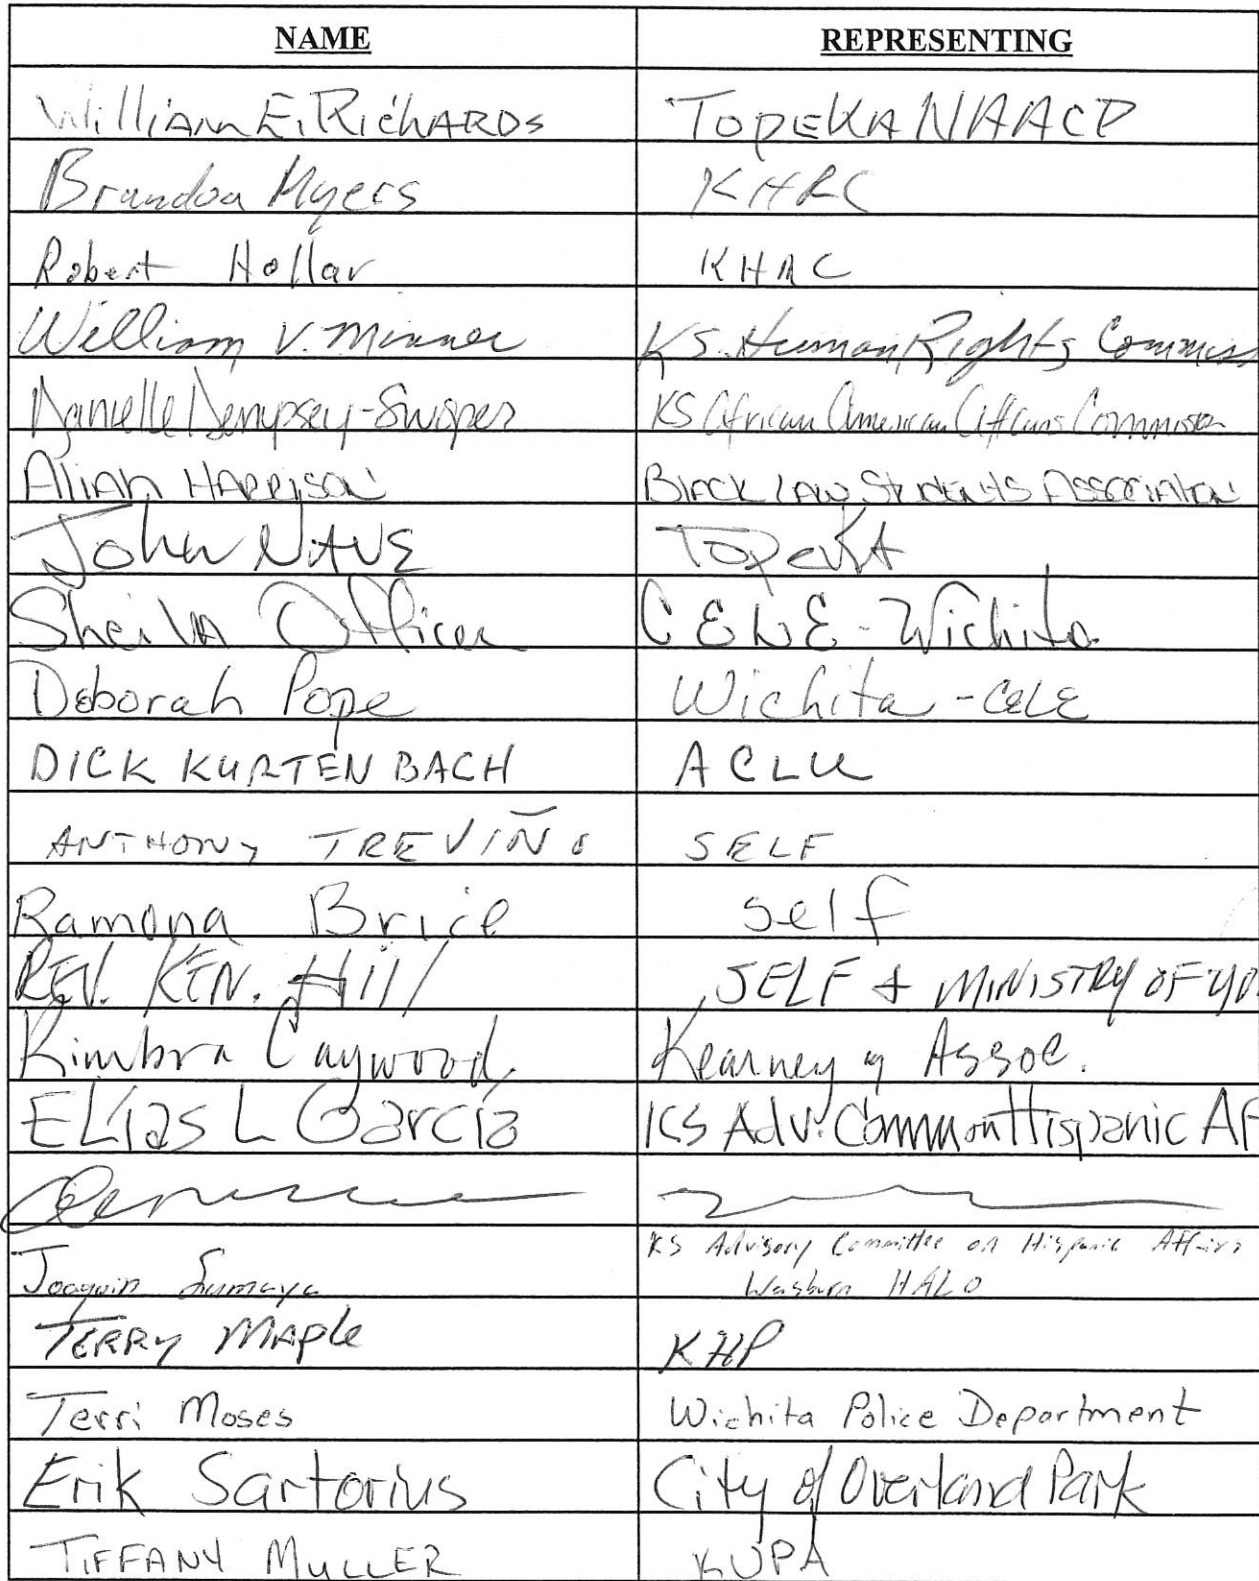 NAME REPRESENTING
William E. Richards Topeka NAACP
Brandon Myers KHRC
Robert Hollar KHRC
William V. Minner KS. Human Rights Commiss
Danielle Dempsey-Swopes KS African American Affairs Commission
Aliah Harrison Black Law Students Association
John Nave Topeka
Sheila Officer CELE-Wichita
Deborah Pope Wichita-CELE
DICK KURTENBACH ACLU
ANTHONY TREVIÑO SELF
Ramona Brice Self
REV. KEN. Hill SELF & MINISTRY OF YO
Kimbra Caywood Kearney & Assoc.
Elías L García KS Adv. Comm on Hispanic Af
KS Advisory Committee on Hispanic Affairs
Joaquin Sumaya Washburn HALO
TERRY MAPLE KHP
Terri Moses Wichita Police Department
Erik Sartorius City of Overland Park
TIFFANY MULLER